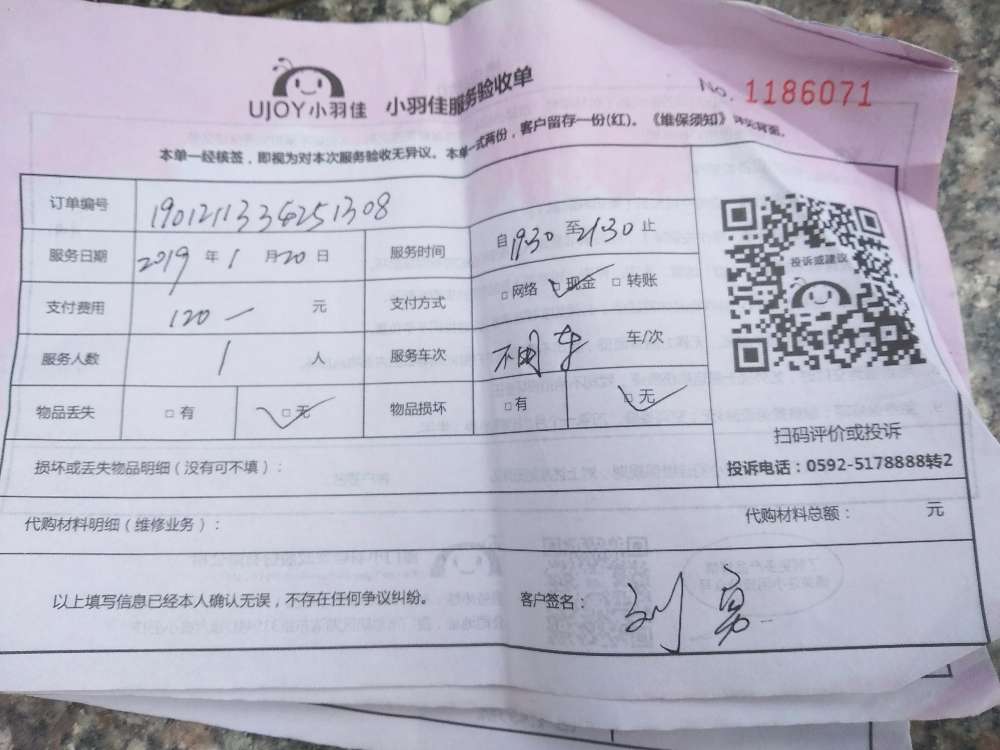 UJOY小羽佳 小羽佳服务验收单 No. 1186071
本单一经核签，即视为对本次服务验收无异议。本单一式两份，客户留存一份(红)。《维保须知》详见背面。
订单编号 1901211334251308
服务日期 2019 年 1 月 20 日 服务时间 自 19:30 至 21:30 止
支付费用 120 — 元 支付方式 □网络 □现金 □转账
服务人数 1 人 服务车次 不用车 车/次
物品丢失 □有 □无 物品损坏 □有 □无
投诉或建议
扫码评价或投诉
投诉电话：0592-5178888转2
损坏或丢失物品明细（没有可不填）：
代购材料明细（维修业务）： 代购材料总额： 元
以上填写信息已经本人确认无误，不存在任何争议纠纷。 客户签名： 刘勇